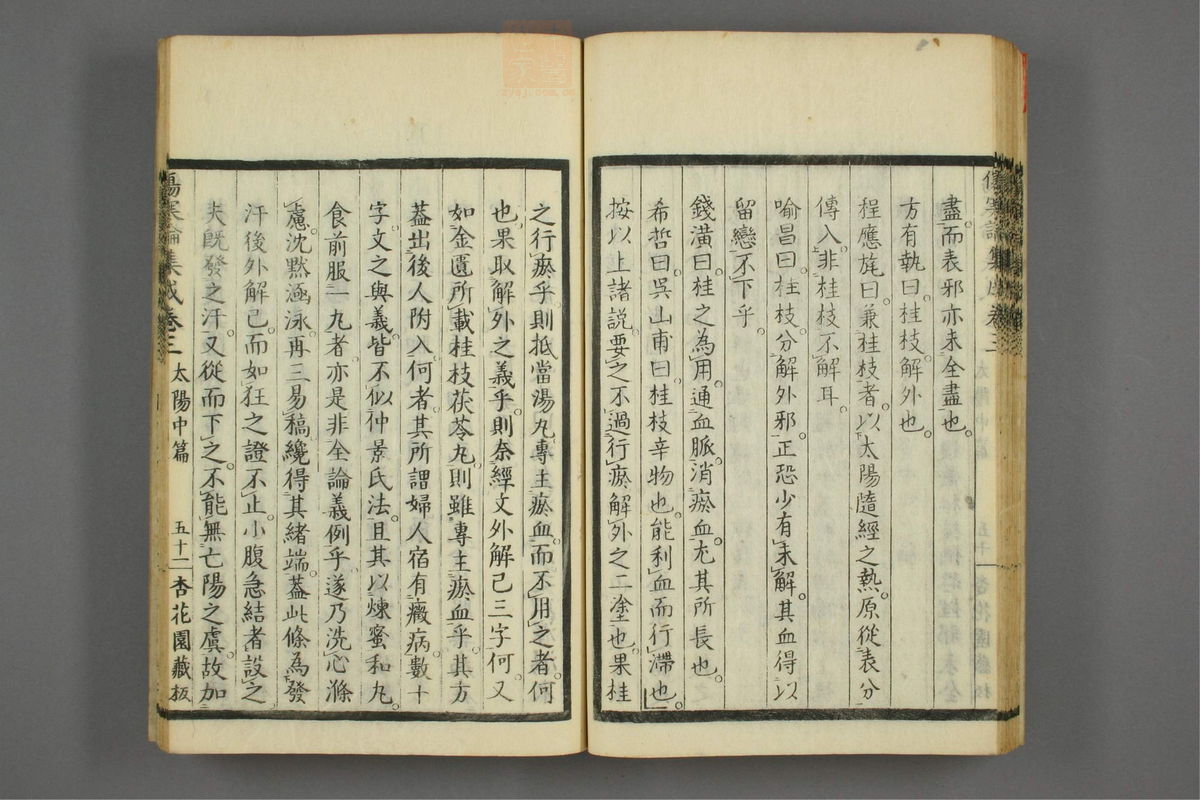 盡而表邪亦未全盡也
方有執曰桂枝解外也
程應旄曰兼桂枝者以太陽隨經之熱原從表分
傳入非桂枝不解耳
喻昌曰桂枝分解外邪正恐少有未解其血得以
留戀不下乎
錢潢曰桂之為用通血脈消瘀血尤其所長也
希哲曰吳山甫曰桂枝辛物也能利血而行滯也
按以上諸說要之不過行瘀解外之二塗也果桂
之行瘀乎則抵當湯丸專主瘀血而不用之者何
也果取解外之義乎則奈經文外解已三字何又
如金匱所載桂枝茯苓丸則雖專主瘀血乎其方
蓋出後人附入何者其所謂婦人宿有癥病數十
字文之與義皆不似仲景氏法且其以煉蜜和丸
食前服一丸者亦是非全論義例乎遂乃洗心滌
慮沈默涵泳再三易稿纔得其緒端蓋此條為發
汗後外解已而如狂之證不止小腹急結者設之
夫既發之汗又從而下之不能無亡陽之虞故加
傷寒論集成卷三 太陽中篇 五十二 杏花園藏板